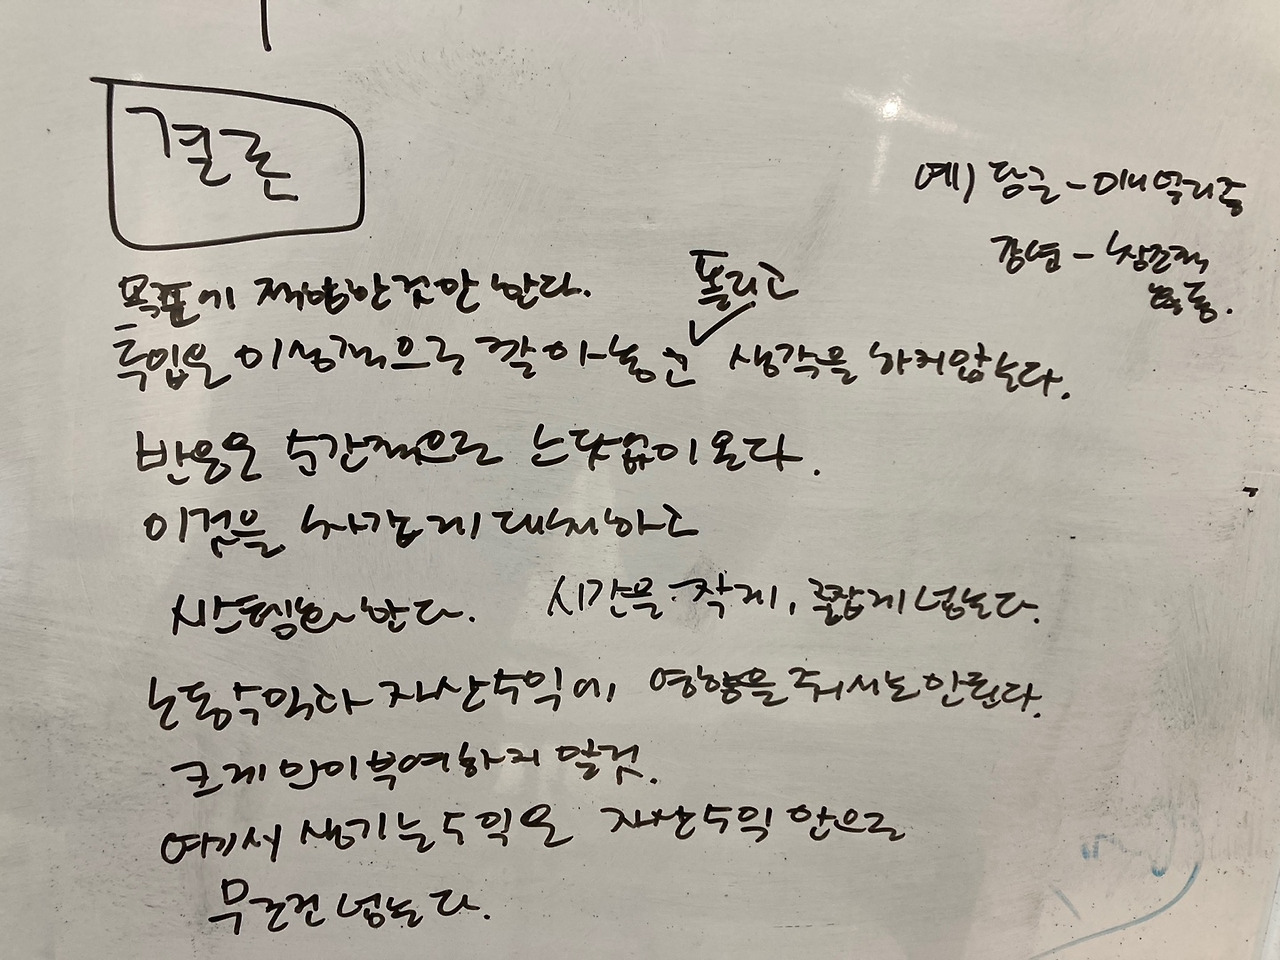 결론
예) 당근 -
강연 - 창조적
활동.
목표에 적합한것만 한다.
돌리고
투입은 이상적으로 깔아놓고 생각을 하지않는다.
반응은 순간적으로 느닷없이 온다.
이것을 차갑게 대처하고
시스템화 한다. 시간을 작게, 좁게 넣는다.
노동수익과 자산수익에 영향을 줘서는 안된다.
크게 의미부여하지 말것.
여기서 생기는 수익은 자산수익 안으로
무조건 넣는다.